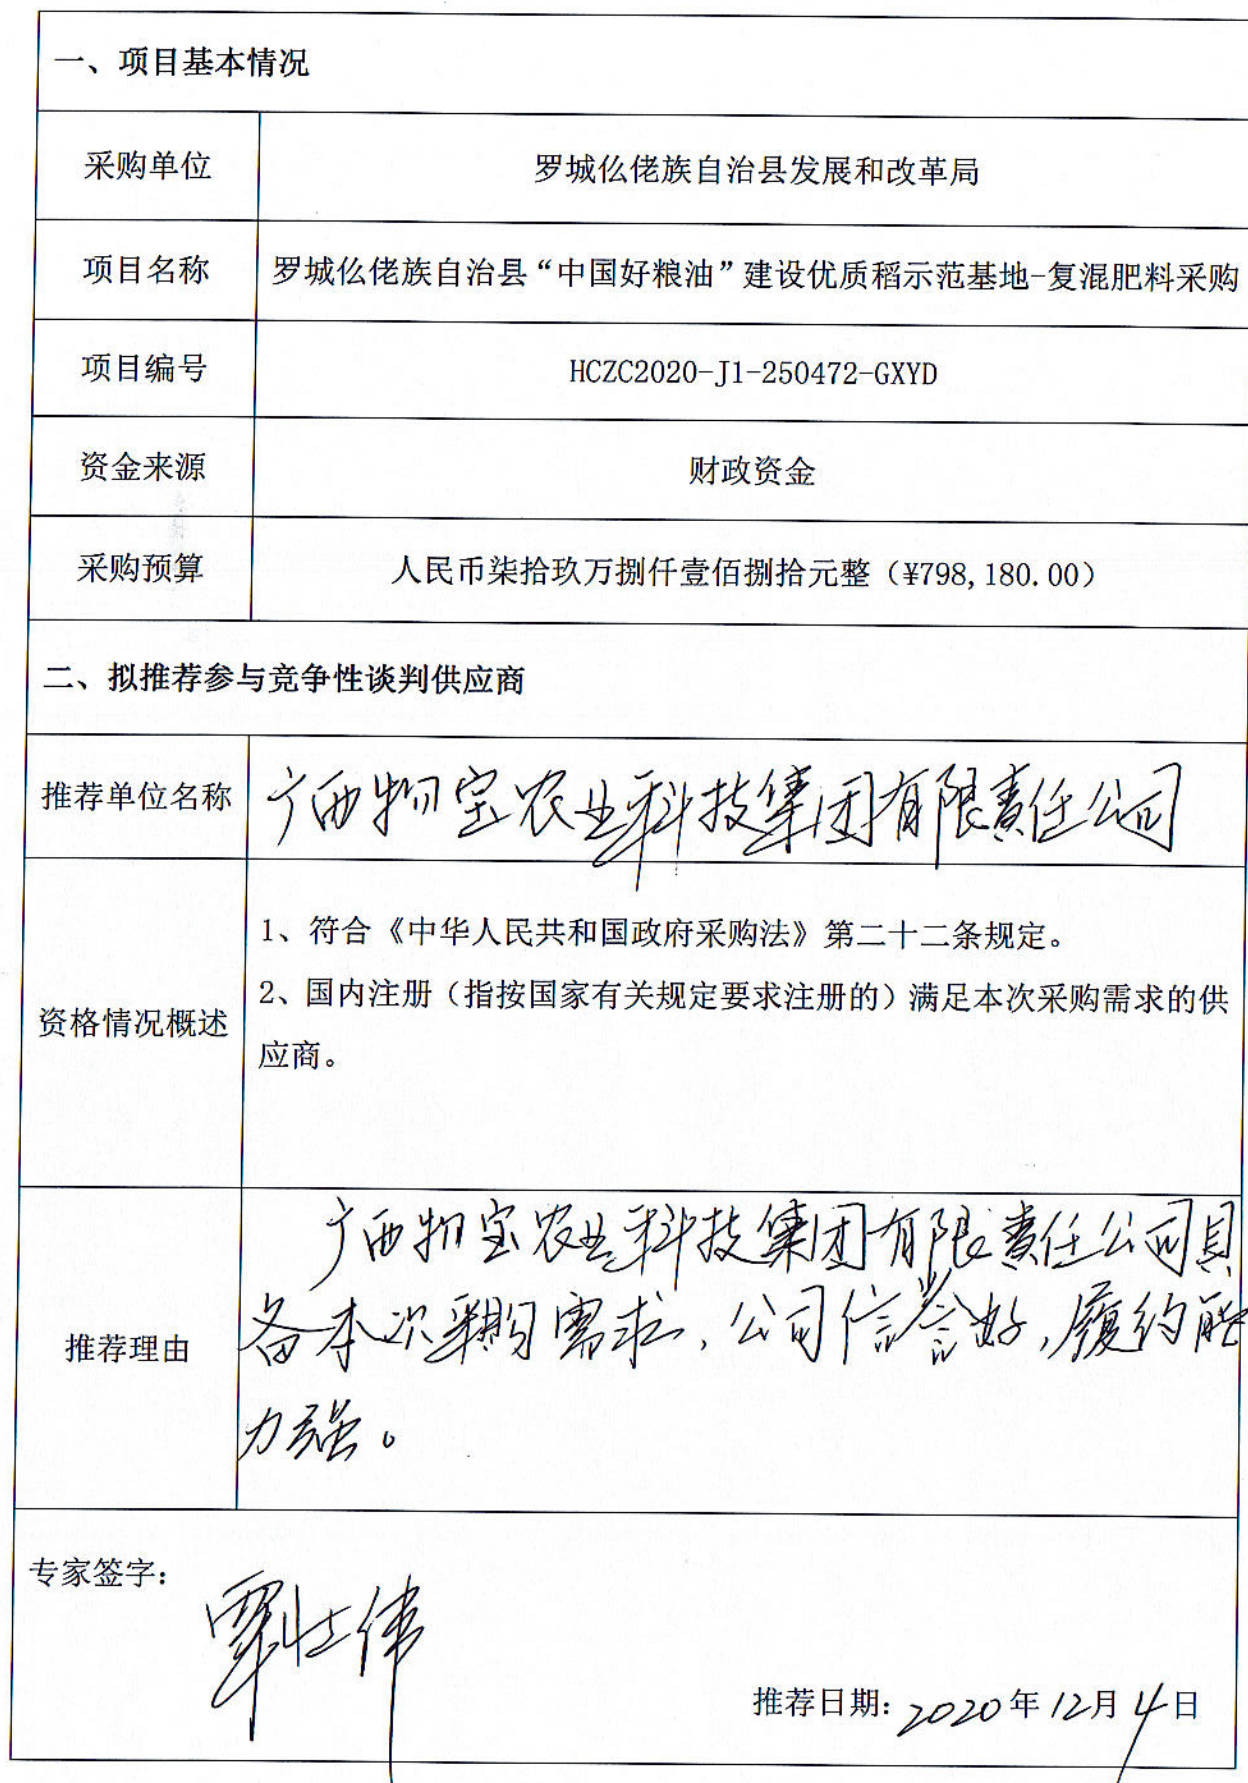 一、项目基本情况
采购单位
罗城仫佬族自治县发展和改革局
项目名称
罗城仫佬族自治县“中国好粮油”建设优质稻示范基地-复混肥料采购
项目编号
HCZC2020-J1-250472-GXYD
资金来源
财政资金
采购预算
人民币柒拾玖万捌仟壹佰捌拾元整（¥798,180.00）
二、拟推荐参与竞争性谈判供应商
推荐单位名称
广西物宝农业科技集团有限责任公司
资格情况概述
1、符合《中华人民共和国政府采购法》第二十二条规定。
2、国内注册（指按国家有关规定要求注册的）满足本次采购需求的供
应商。
推荐理由
广西物宝农业科技集团有限责任公司具
备本次采购需求，公司信誉好，履约能
力强。
专家签字：
覃壮伟
推荐日期：2020年12月4日